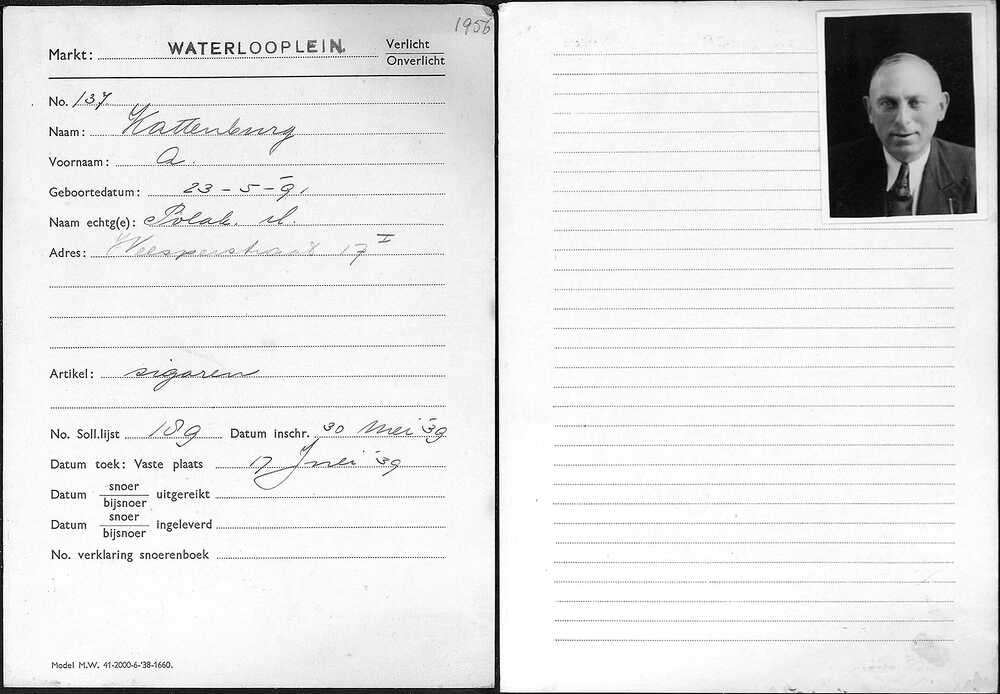 1956
Markt: WATERLOOPLEIN. Verlicht
Onverlicht
No. 137
Naam: Kattenburg
Voornaam: A.
Geboortedatum: 23-5-'91
Naam echtg(e): Polak. M.
Adres: Weesperstraat 17 I
Artikel: sigaren
No. Soll.lijst 189 Datum inschr. 30 Mei '39
Datum toek: Vaste plaats 17 Juli '39
Datum snoer/bijsnoer uitgereikt
Datum snoer/bijsnoer ingeleverd
No. verklaring snoerenboek
Model M.W. 41-2000-6-'38-1660.